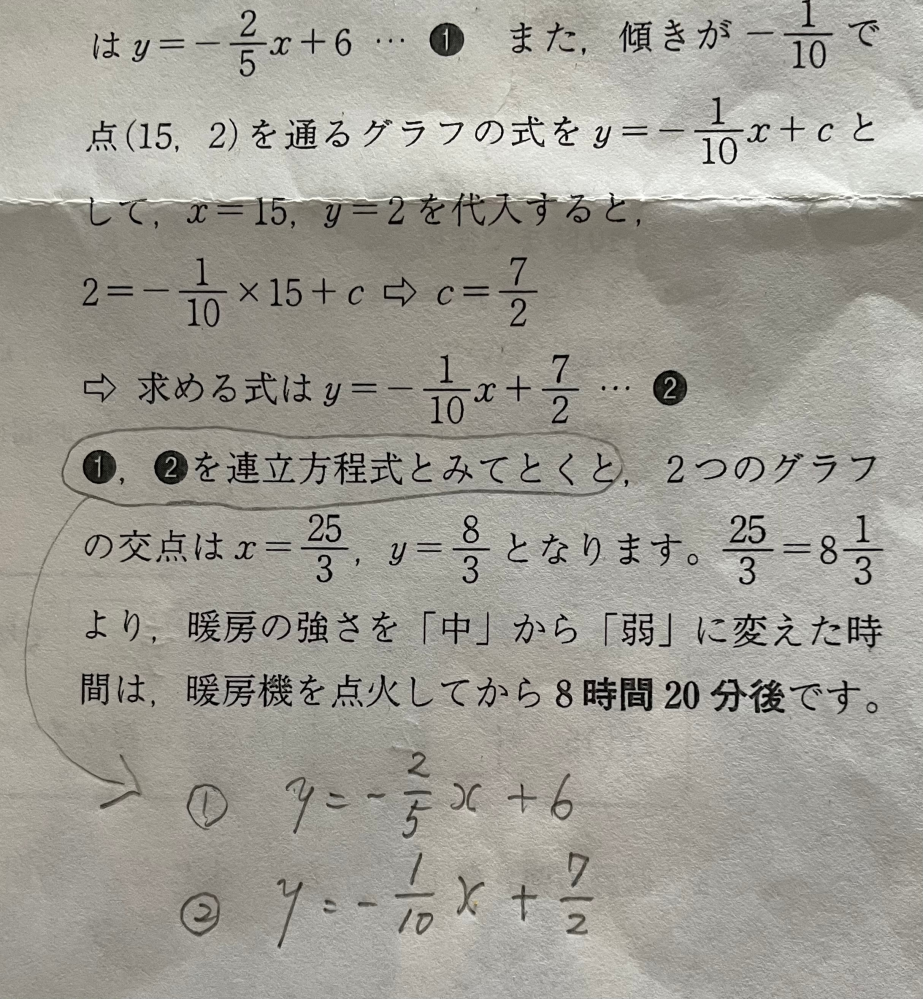 は y=−2/5x+6 … ❶ また，傾きが −1/10 で
点(15, 2)を通るグラフの式を y=−1/10x+c と
して，x=15, y=2 を代入すると，
2=−1/10×15+c ⇨ c=7/2
⇨ 求める式は y=−1/10x+7/2 … ❷
❶，❷を連立方程式とみてとくと，2つのグラフ
の交点は x=25/3, y=8/3 となります。25/3=8 1/3
より，暖房の強さを「中」から「弱」に変えた時
間は，暖房機を点火してから 8時間20分後です。
① y=−2/5x+6
② y=−1/10x+7/2